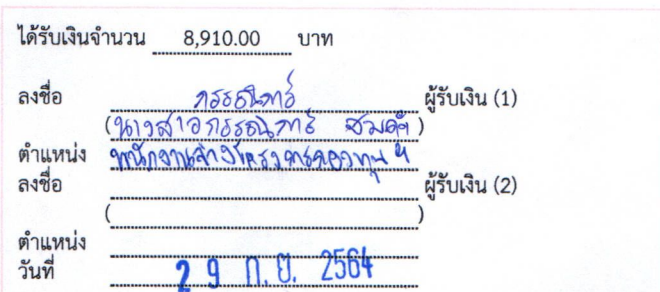 ได้รับเงินจำนวน 8,910.00 บาท
ลงชื่อ กรรณิการ์ ผู้รับเงิน (1)
(นางสาวกรรณิการ์)
ตำแหน่ง พนักงานล่างโครงการกองทุนฯ
ลงชื่อ ผู้รับเงิน (2)
( )
ตำแหน่ง
วันที่ 29 ก.ย. 2564